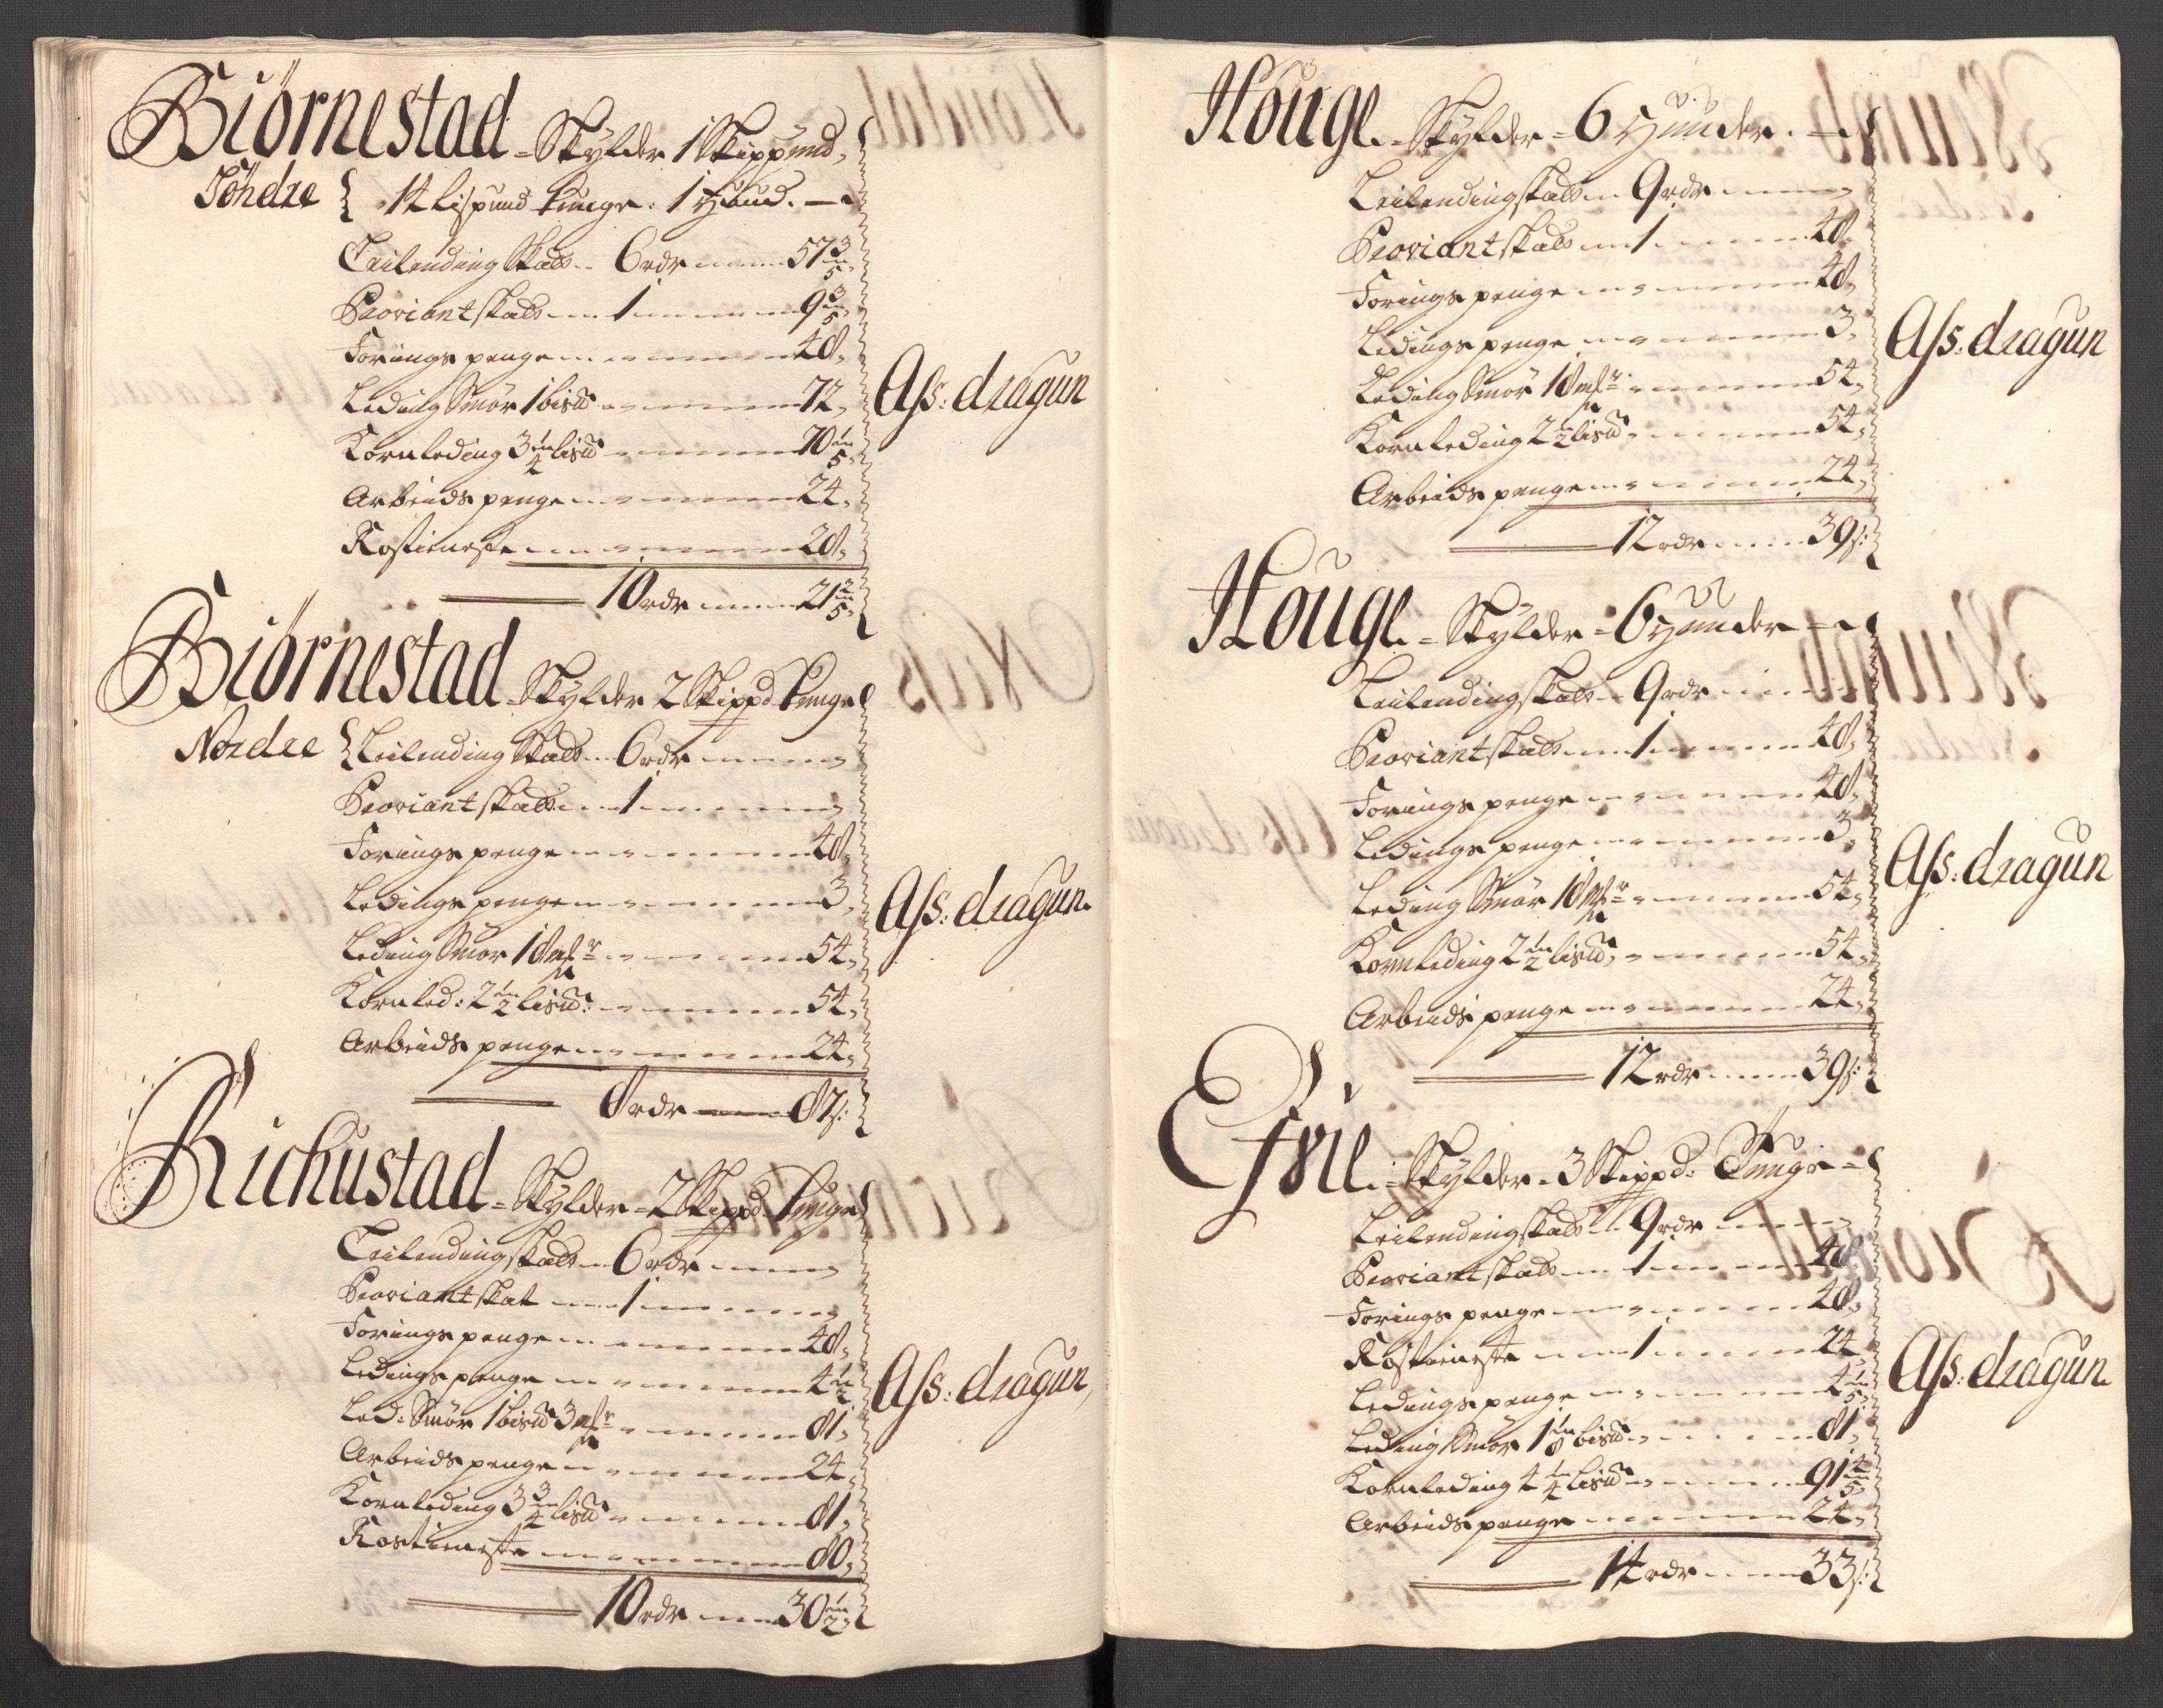 Biörnestad - Skylder 1 Skippund,
Söndre 14 Lispund tunge: 1 Huud.
Leilending Skatt 6 rdr 57 3/5
Proviantskatt 1 9 3/5
Forings penge 48,
Leding Smör 1 bisd 72,
Kornleding 3 1/4 lisd 70 1/5
Arbeids penge 24,
Rostieneste 28,
10 rdr 21 2/5
Ass: dragun
Biörnestad - Skylder 2 Skippd tunge
Nordre Leilending Skatt 6 rdr
Proviantskatt 1
Forings penge 48,
Ledings penge 3,
Leding Smör 18 mkr 54,
Kornled: 2 1/2 lisd: 54,
Arbeids penge 24,
8 rdr 87 s:
Ass: dragun.
Richustad - Skylder - 2 Skippd tunge
Leilending skatt 6 rdr
Proviant skat 1
Forings penge 48,
Ledings penge 4 1/2
Led: Smör 1 bisd 3 mkr 81,
Arbeids penge 24,
Kornleding 3 3/4 lisd 81,
Rostieneste 80,
10 rdr 30 1/2
Ass: dragun,
Houge - Skylder = 6 Huuder.
Leilendingskatt 9 rdr
Proviantskatt 1 48,
Forings penge 48,
Ledings penge 3,
Leding Smör 18 mkr 54,
Kornleding 2 1/2 lisd 54,
Arbeids penge 24,
12 rdr 39 s:
Ass: dragun
Houge - Skylder = 6 Huuder
Leilendingskatt 9 rdr
Proviantskatt 1 48,
Forings penge 48,
Ledings penge 3,
Leding Smör 18 mkr 54,
Kornleding 2 1/2 lisd, 54,
Arbeids penge 24,
12 rdr 39 s:
Ass: dragun
Skylder 3 Skippd: Tunge
Leilendingskatt 9 rdr
Proviantskatt 1 48,
Forings penge 48,
Rostieneste 1 24
Ledings penge 4 1/5
Leding Smör 1 1/8 bisd 81,
Kornleding 4 1/4 Lisd 91 4/5
Arbeids penge 24,
14 rdr 33 s:
Ass: dragun.